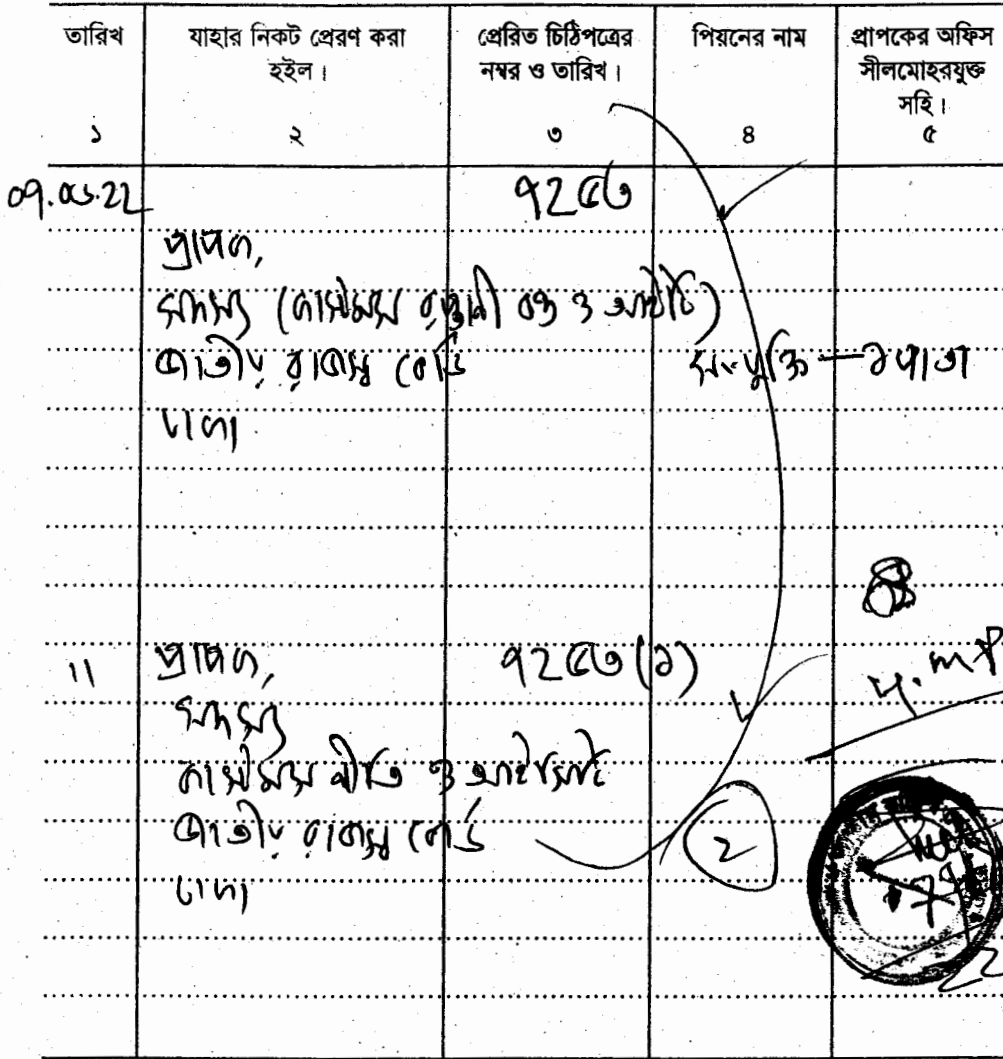 তারিখ যাহার নিকট প্রেরণ করা হইল। প্রেরিত চিঠিপত্রের নম্বর ও তারিখ। পিয়নের নাম প্রাপকের অফিস সীলমোহরযুক্ত সহি।
১ ২ ৩ ৪ ৫
৭২৫৩
প্রাপক,
সদস্য (কাস্টমস রপ্তানী বন্ড ও আইটি)
জাতীয় রাজস্ব বোর্ড সংযুক্তি — ১ পাতা
ঢাকা
" প্রাপক, ৭২৫৩ (১)
সদস্য
কাস্টমস নীতি ও আইসিটি
জাতীয় রাজস্ব বোর্ড 2
ঢাকা